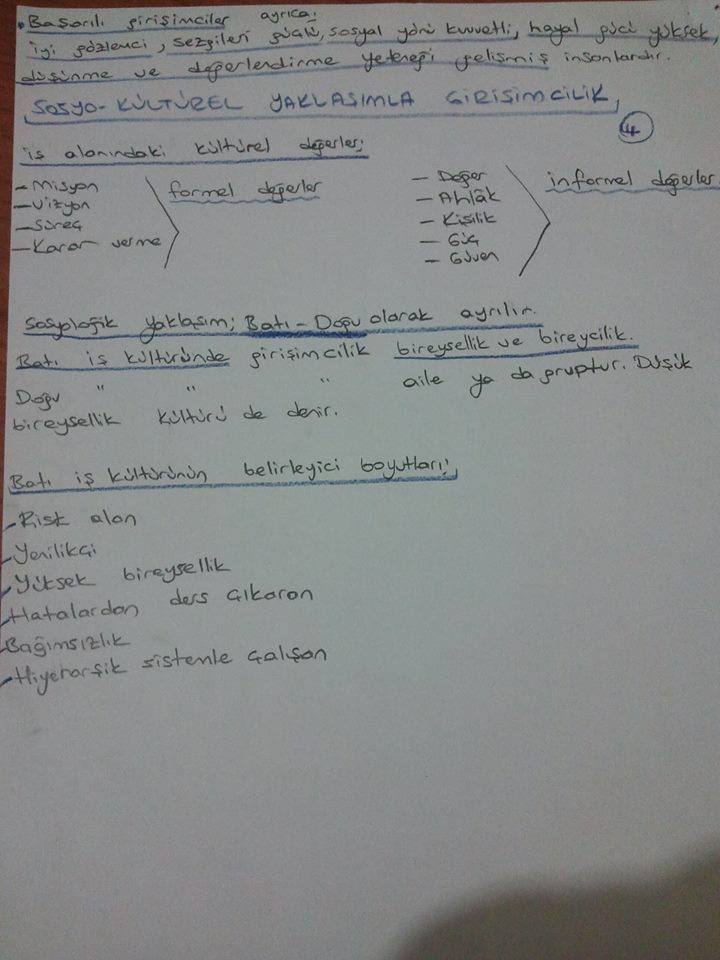 • Başarılı girişimciler ayrıca;
iyi gözlemci, sezgileri güçlü, sosyal yönü kuvvetli, hayal gücü yüksek,
düşünme ve değerlendirme yeteneği gelişmiş insanlardır.
SOSYO-KÜLTÜREL YAKLAŞIMLA GİRİŞİMCİLİK;
4
iş alanındaki kültürel değerler;
- Misyon
- Vizyon
- Süreç
- Karar verme
formel değerler
- Değer
- Ahlâk
- Kişilik
- Güç
- Güven
informel değerler
Sosyolojik yaklaşım; Batı - Doğu olarak ayrılır.
Batı iş kültüründe girişimcilik bireysellik ve bireycilik.
Doğu " " " aile ya da gruptur. Düşük
bireysellik kültürü de denir.
Batı iş kültürünün belirleyici boyutları;
- Risk alan
- Yenilikçi
- Yüksek bireysellik
- Hatalardan ders çıkaran
- Bağımsızlık
- Hiyerarşik sistemle çalışan